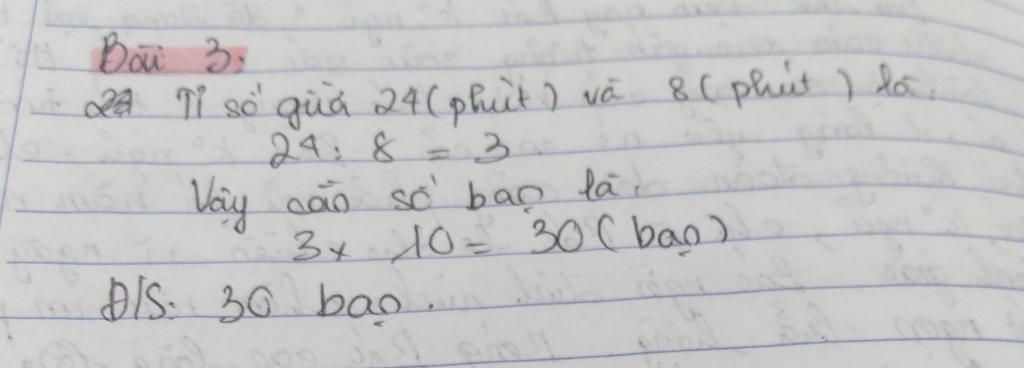 Bài 3:
Tỉ số giữa 24 (phút) và 8 (phút) là.
24 : 8 = 3
Vậy cần số bạn là.
3 x 10 = 30 (bạn)
Đ/S: 30 bạn.